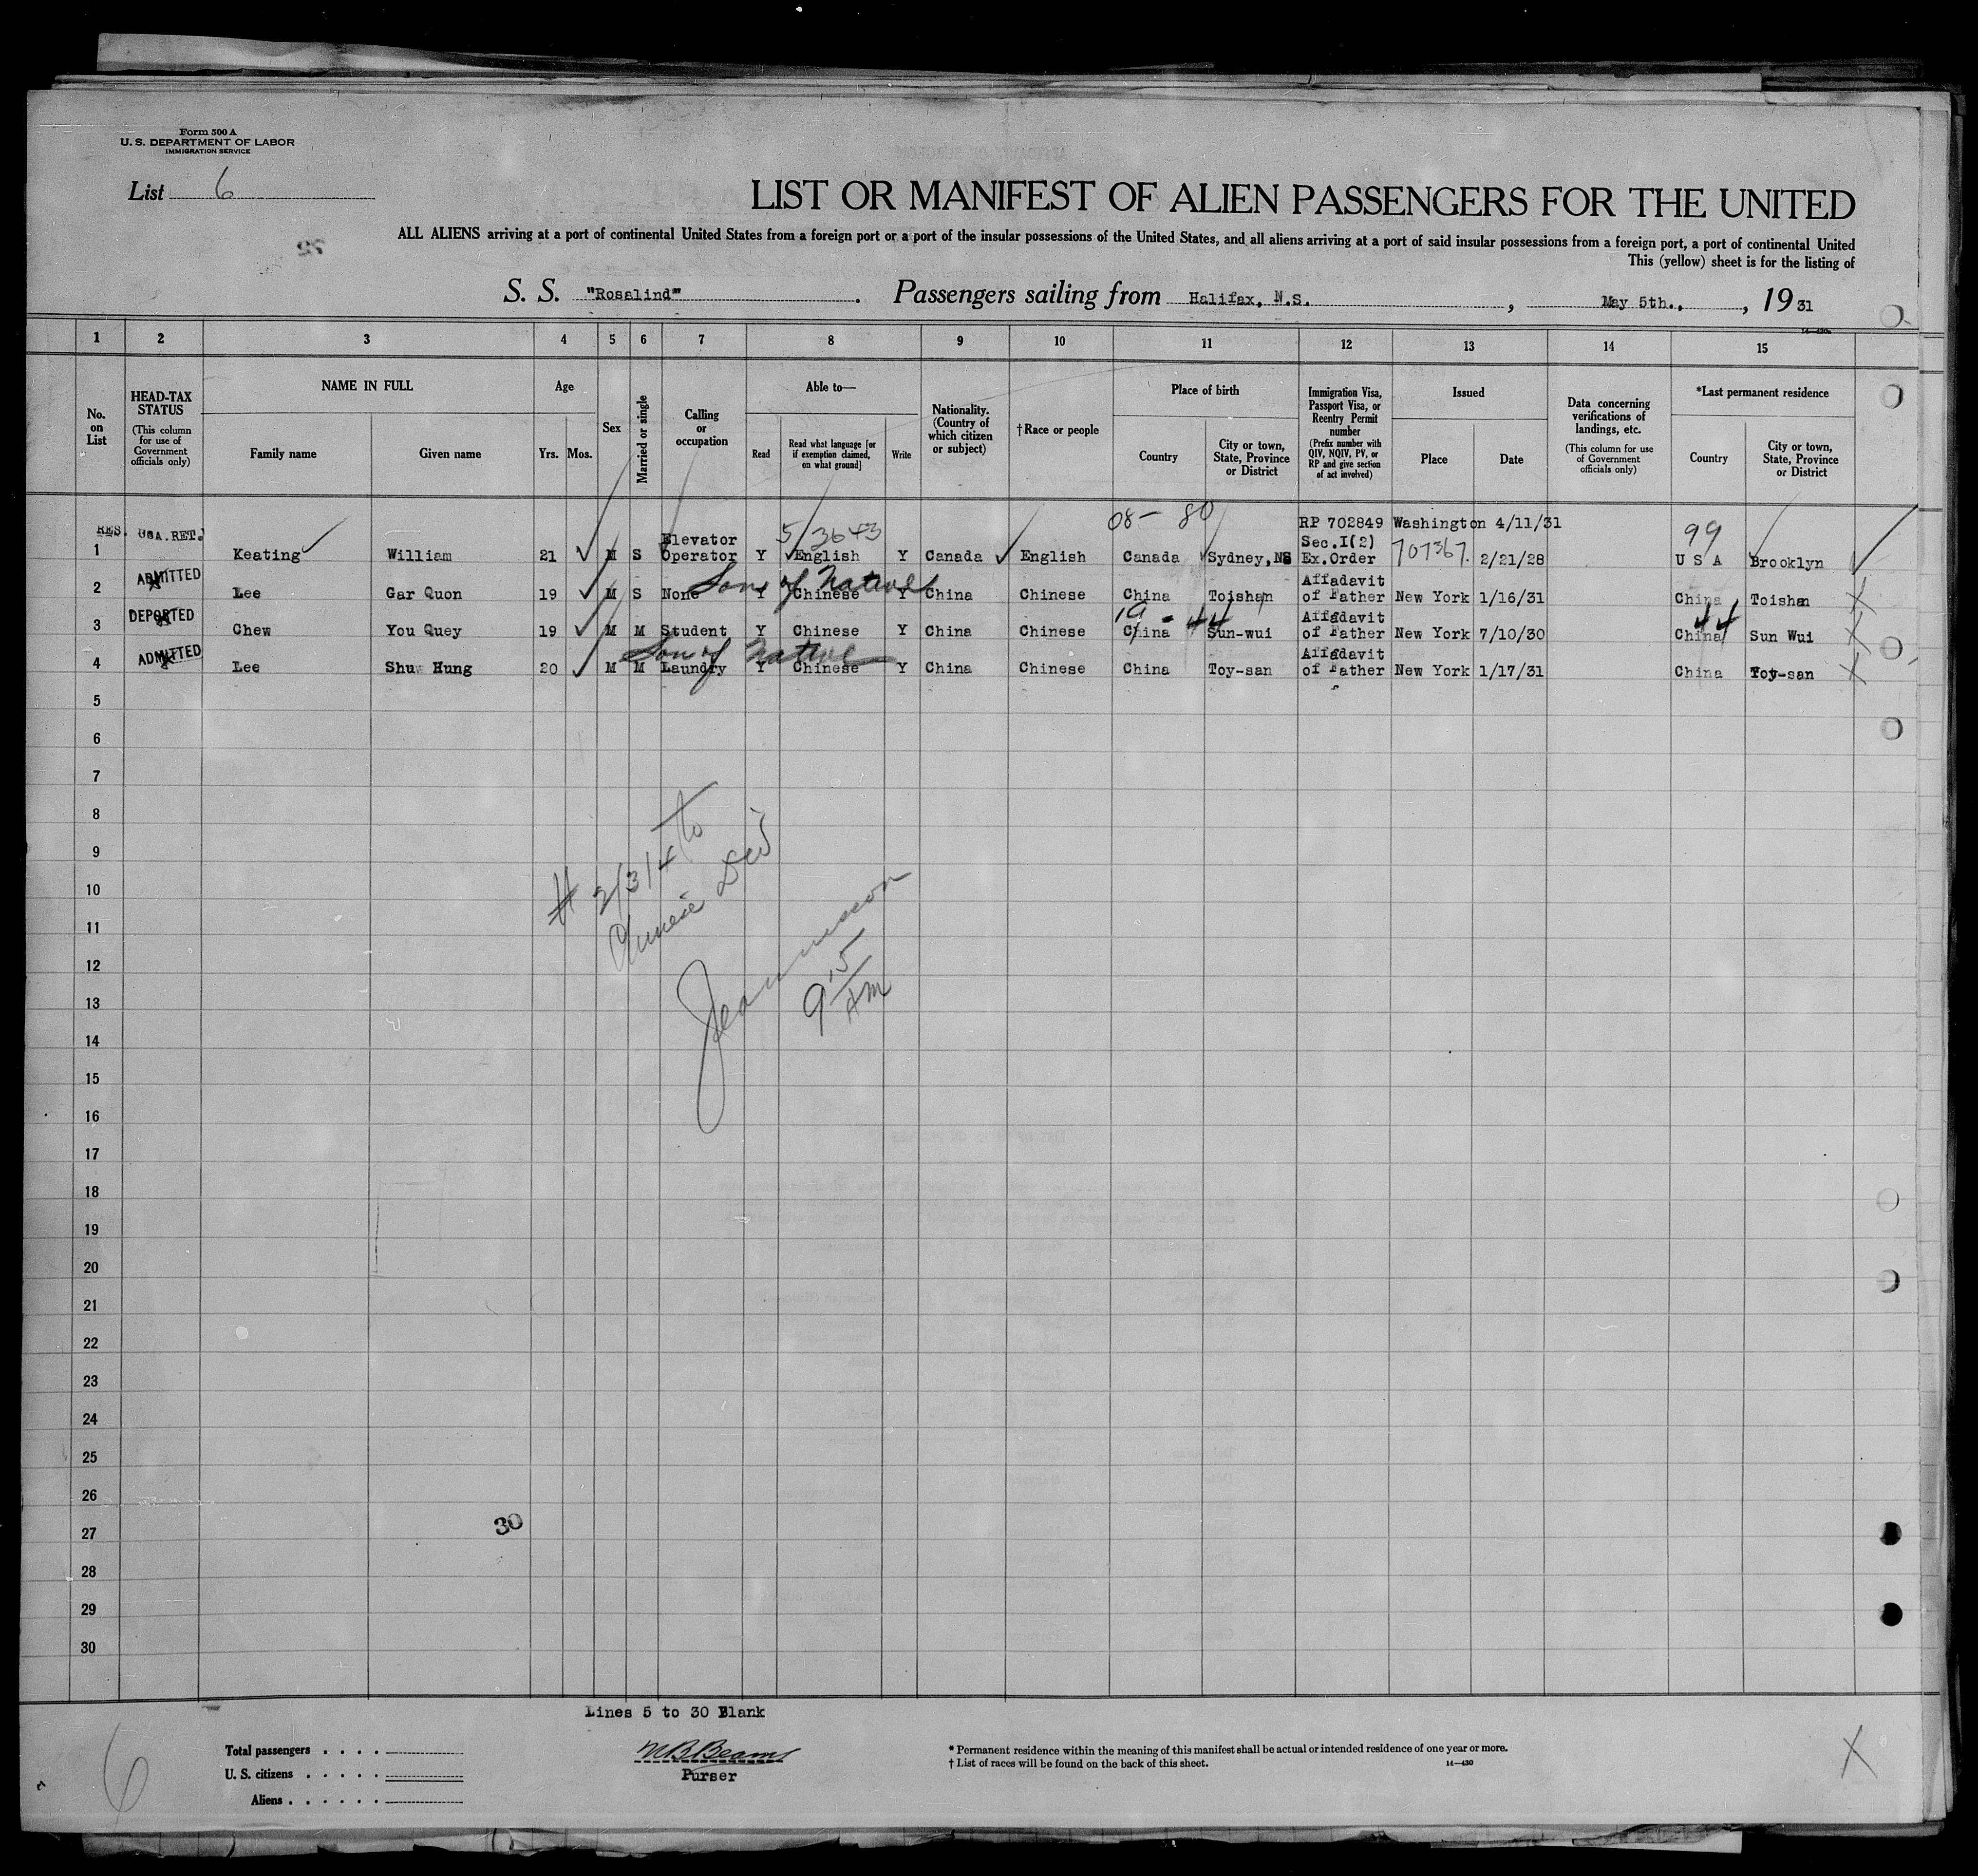 Form 500 A
U. S. DEPARTMENT OF LABOR
IMMIGRATION SERVICE
List 6
LIST OR MANIFEST OF ALIEN PASSENGERS FOR THE UNITED
ALL ALIENS arriving at a port of continental United States from a foreign port or a port of the insular possessions of the United States, and all aliens arriving at a port of said insular possessions from a foreign port, a port of continental United
This (yellow) sheet is for the listing of
S. S. "Rosalind". Passengers sailing from Halifax, N.S., May 5th., , 19 31
14—430
1 2 3 4 5 6 7 8 9 10 11 12 13 14 15
No. on List
HEAD-TAX STATUS (This column for use of Government officials only)
NAME IN FULL
Family name Given name
Age
Yrs. Mos.
Sex
Married or single
Calling or occupation
Able to—
Read Read what language [or if exemption claimed, on what ground] Write
Nationality. (Country of which citizen or subject)
†Race or people
Place of birth
Country City or town, State, Province or District
Immigration Visa, Passport Visa, or Reentry Permit number (Prefix number with QIV, NQIV, PV, or RP and give section of act involved)
Issued
Place Date
Data concerning verifications of landings, etc. (This column for use of Government officials only)
*Last permanent residence
Country City or town, State, Province or District
08 - 80
5/3643
99
RES. USA.RET.
1 Keating William 21 M S Elevator Operator Y English Y Canada English Canada Sydney, NS RP 702849 Sec.I(2) Ex.Order Washington 4/11/31 707367 2/21/28 U S A Brooklyn
Son of Native
2 ADMITTED Lee Gar Quon 19 M S None Y Chinese Y China Chinese China Toishan Affadavit of Father New York 1/16/31 China Toishan
19 - 44
44
3 DEPORTED Chew You Quey 19 M M Student Y Chinese Y China Chinese China Sun-wui Affadavit of Father New York 7/10/30 China Sun Wui
Son of Native
4 ADMITTED Lee Shu Hung 20 M M Laundry Y Chinese Y China Chinese China Toy-san Affadavit of Father New York 1/17/31 China Toy-san
5
6
7
8
9
10
11
12
13
14
15
16
17
18
19
20
21
22
23
24
25
26
27
28
29
30
# 2/3/4 to
Chinese Div
9 15 AM
30
Lines 5 to 30 Blank
Total passengers . . . .
U. S. citizens . . . . .
Aliens . . . . . .
Purser
* Permanent residence within the meaning of this manifest shall be actual or intended residence of one year or more.
† List of races will be found on the back of this sheet.
14—430
6
X